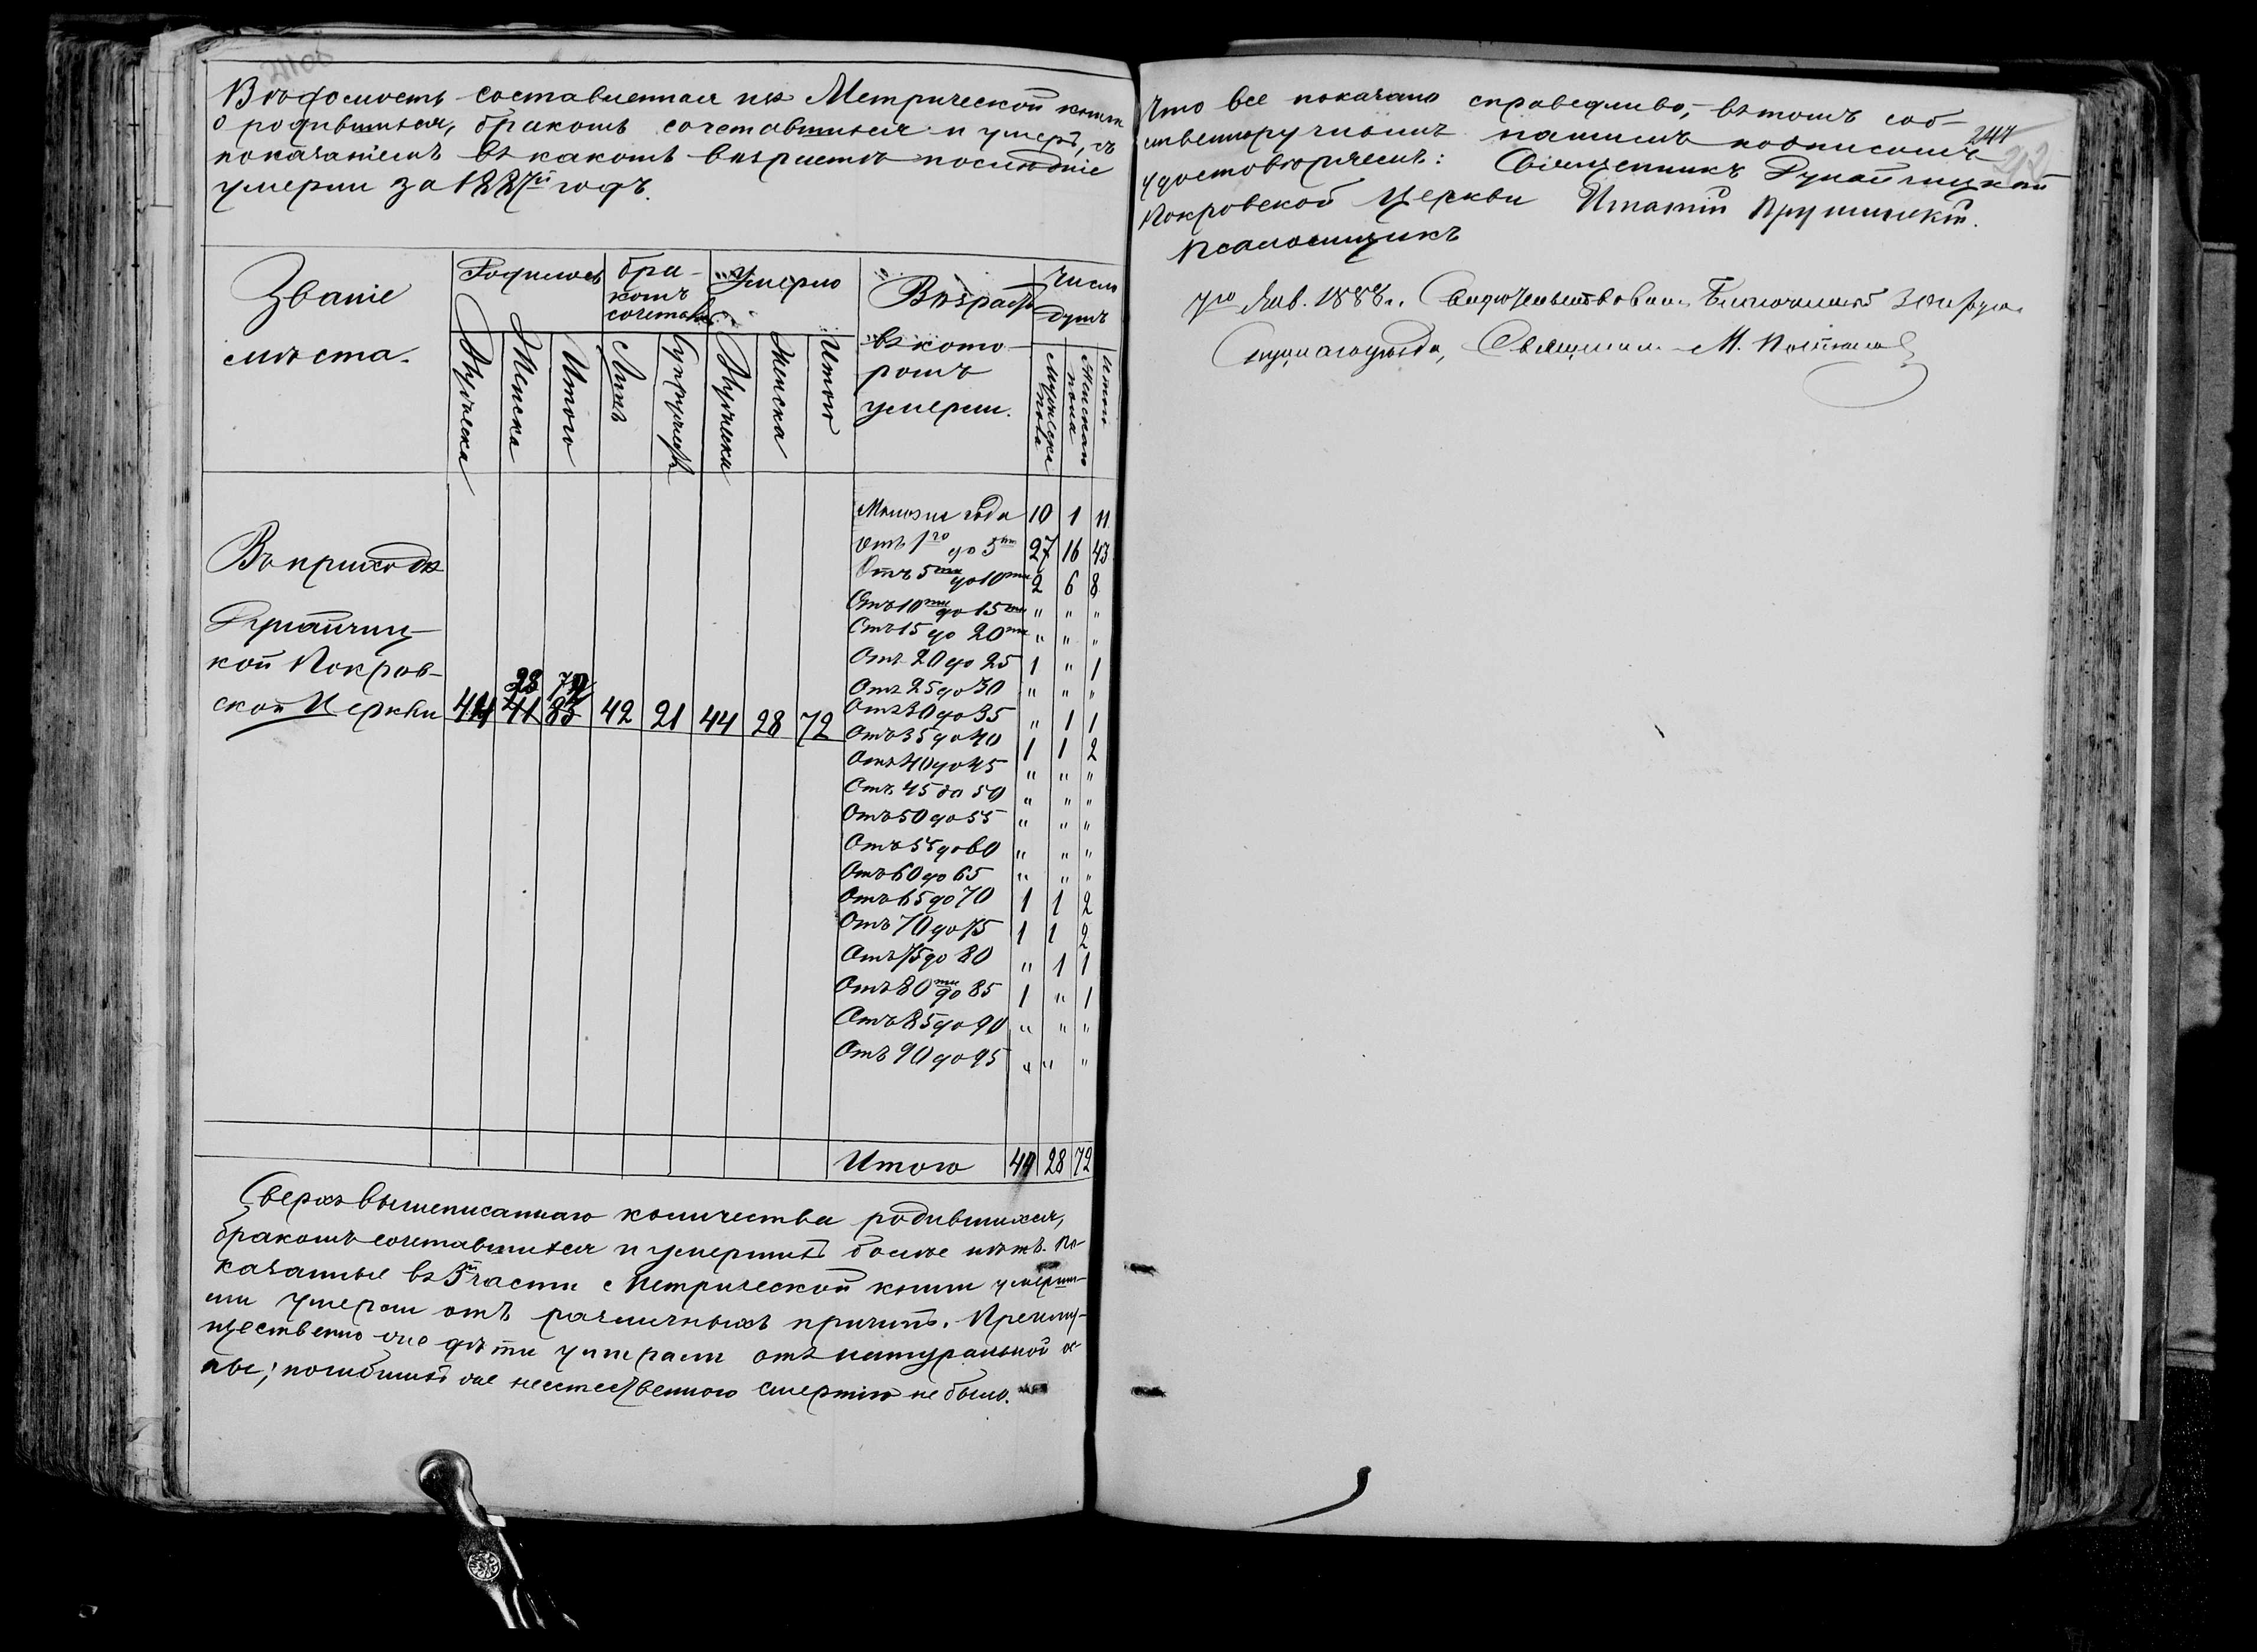 Вѣдомость составленная изъ Метрической книги
о родившихся, бракомъ сочетавшихся и умерш, съ
показаніемъ въ какомъ возрастѣ послѣдніе
умерли за 1887й годъ.
Званіе
мѣста.
Родилось
Мужеска
Женска
Итого
бра-
комъ
сочетав.
Лицъ
Супружеств
Умерло
Мужеска
Женска
Итого
Возрастъ
въ кото-
ромъ
умерли.
Число
душъ
Мужеска пола
Женскаго пола
Итого
Въ приходѣ
кой Покров-
ской Церкви 44 41 85 42 21 44 28 72
28 72
Моложе года 10 1 11
Отъ 1го до 5ти 27 16 43
Отъ 5ти до 10ти 2 6 8
Отъ 10ти до 15ти " " "
Отъ 15 до 20ти " " "
Отъ 20 до 25 1 " 1
Отъ 25 до 30 " " "
Отъ 30 до 35 " 1 1
Отъ 35 до 40 1 1 2
Отъ 40 до 45 " " "
Отъ 45 до 50 " " "
Отъ 50 до 55 " " "
Отъ 55 до 60 " " "
Отъ 60 до 65 " " "
Отъ 65 до 70 1 1 2
Отъ 70 до 75 1 1 2
Отъ 75 до 80 " 1 1
Отъ 80ти до 85 1 " 1
Отъ 85 до 90 " " "
Отъ 90 до 95 " " "
Итого 44 28 72
Сверхъ вышеписаннаго количества родившихся,
бракомъ сочетавшихся и умершихъ болѣе нѣтъ. По-
казанные въ 3й части Метрической книги умерш-
ми умерли отъ различныхъ причинъ. Преиму-
щественно же дѣти умирали отъ натуральной ос-
пы; погибшихъ же неестественною смертію не было.
Что все показано справедливо, въ томъ соб-
ственноручнымъ нашимъ подписомъ
удостовѣряемъ: Священникъ
Покровской Церкви Игнатій
Псаломщикъ
244
7го Янв. 1888 г. Свидѣтельствовалъ Благочинный
Священникъ М.